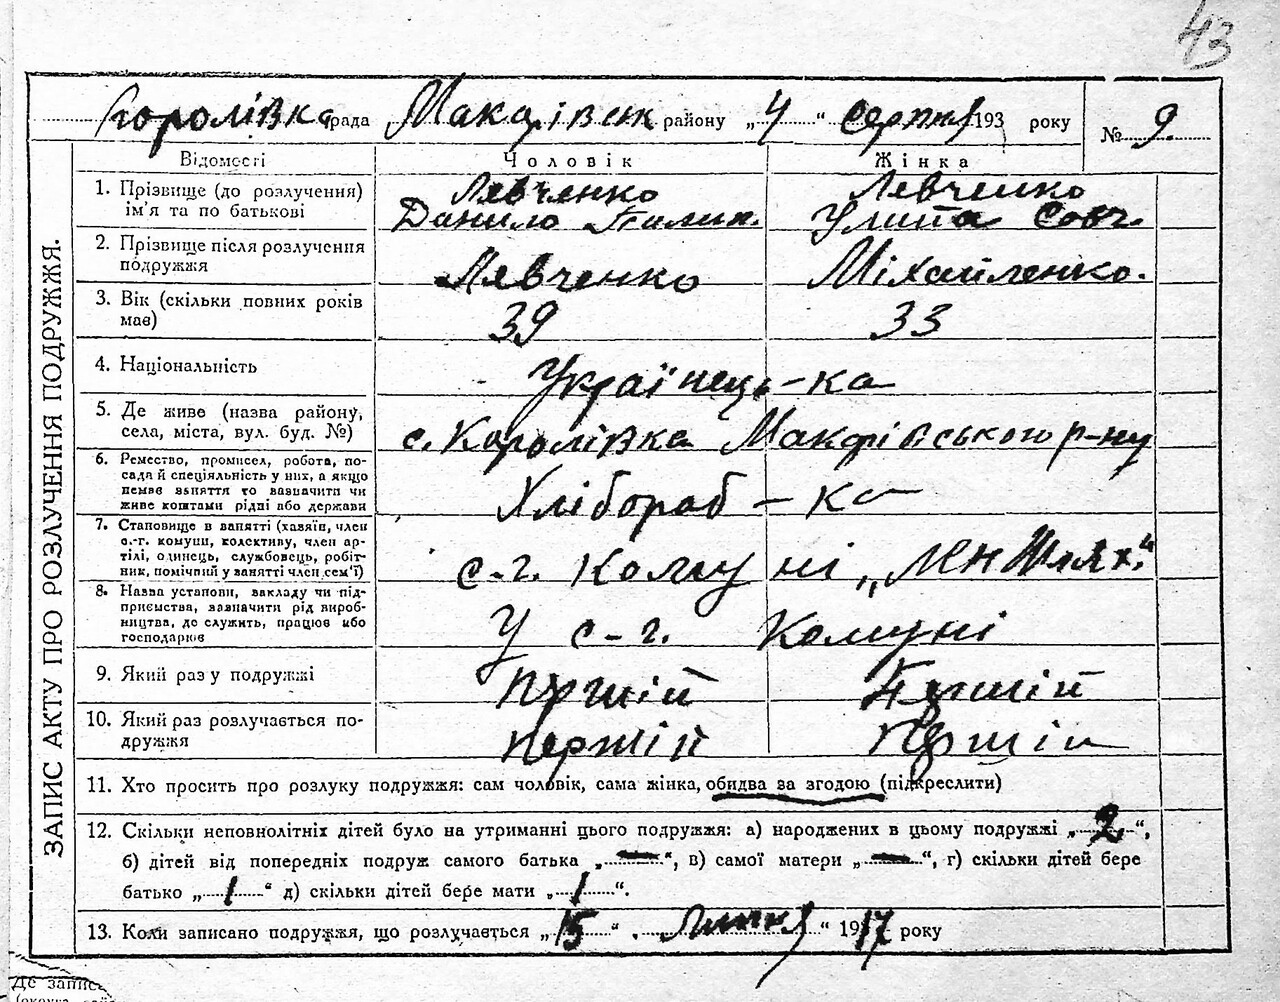 43
Королівка рада Макарівськ району „4“ серпня 193 року № 9.
ЗАПИС АКТУ ПРО РОЗЛУЧЕННЯ ПОДРУЖЖЯ.
Відомості Чоловік Жінка
1. Прізвище (до розлучення) Лявченко Левченко
ім'я та по батькові Данило Пилип. Улита Совч.
2. Прізвище після розлучення
подружжя Лявченко Міхайленко.
3. Вік (скільки повних років
має) 39 33
4. Національність Українець-ка
5. Де живе (назва району,
села, міста, вул. буд. №) с. Королівка Макарівського р-ну
6. Ремество, промисел, робота, по-
сада й спеціяльність у них, а якщо
немає заняття то зазначити чи
живе коштами рідні або держави Хлібороб-ка
7. Становище в занятті (хазяїн, член
с.-г. комуни, колективу, член ар-
тілі, одинець, службовець, робіт-
ник, помічний у занятті член сем'ї) с-г. Комуні Шлях“
8. Назва установи, закладу чи під-
приємства, зазначити рід вироб-
ництва, де служить, працює або
господарює У с-г. Комуні
9. Який раз у подружжі Перший Перший
10. Який раз розлучається по-
дружжя Перший Перший
11. Хто просить про розлуку подружжя: сам чоловік, сама жінка, обидва за згодою (підкреслити)
12. Скільки неповнолітніх дітей було на утриманні цього подружжя: а) народжених в цьому подружжі „2“,
б) дітей від попередніх подруж самого батька „—“, в) самої матери „—“, г) скільки дітей бере
батько „1“ д) скільки дітей бере мати „1“.
13. Коли записано подружжя, що розлучається „15“ Липня “ 1917 року
Де запис